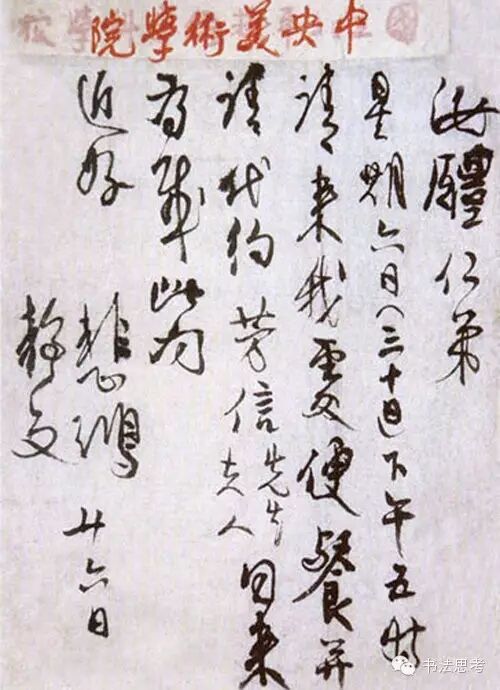 中央美術學院
汝醴仁弟
星期六日（三十日）下午五時
請來我處便餐并
請代约芳信先生夫人同來
為感此问
近好
悲鴻 廿六日
靜文
书法思考